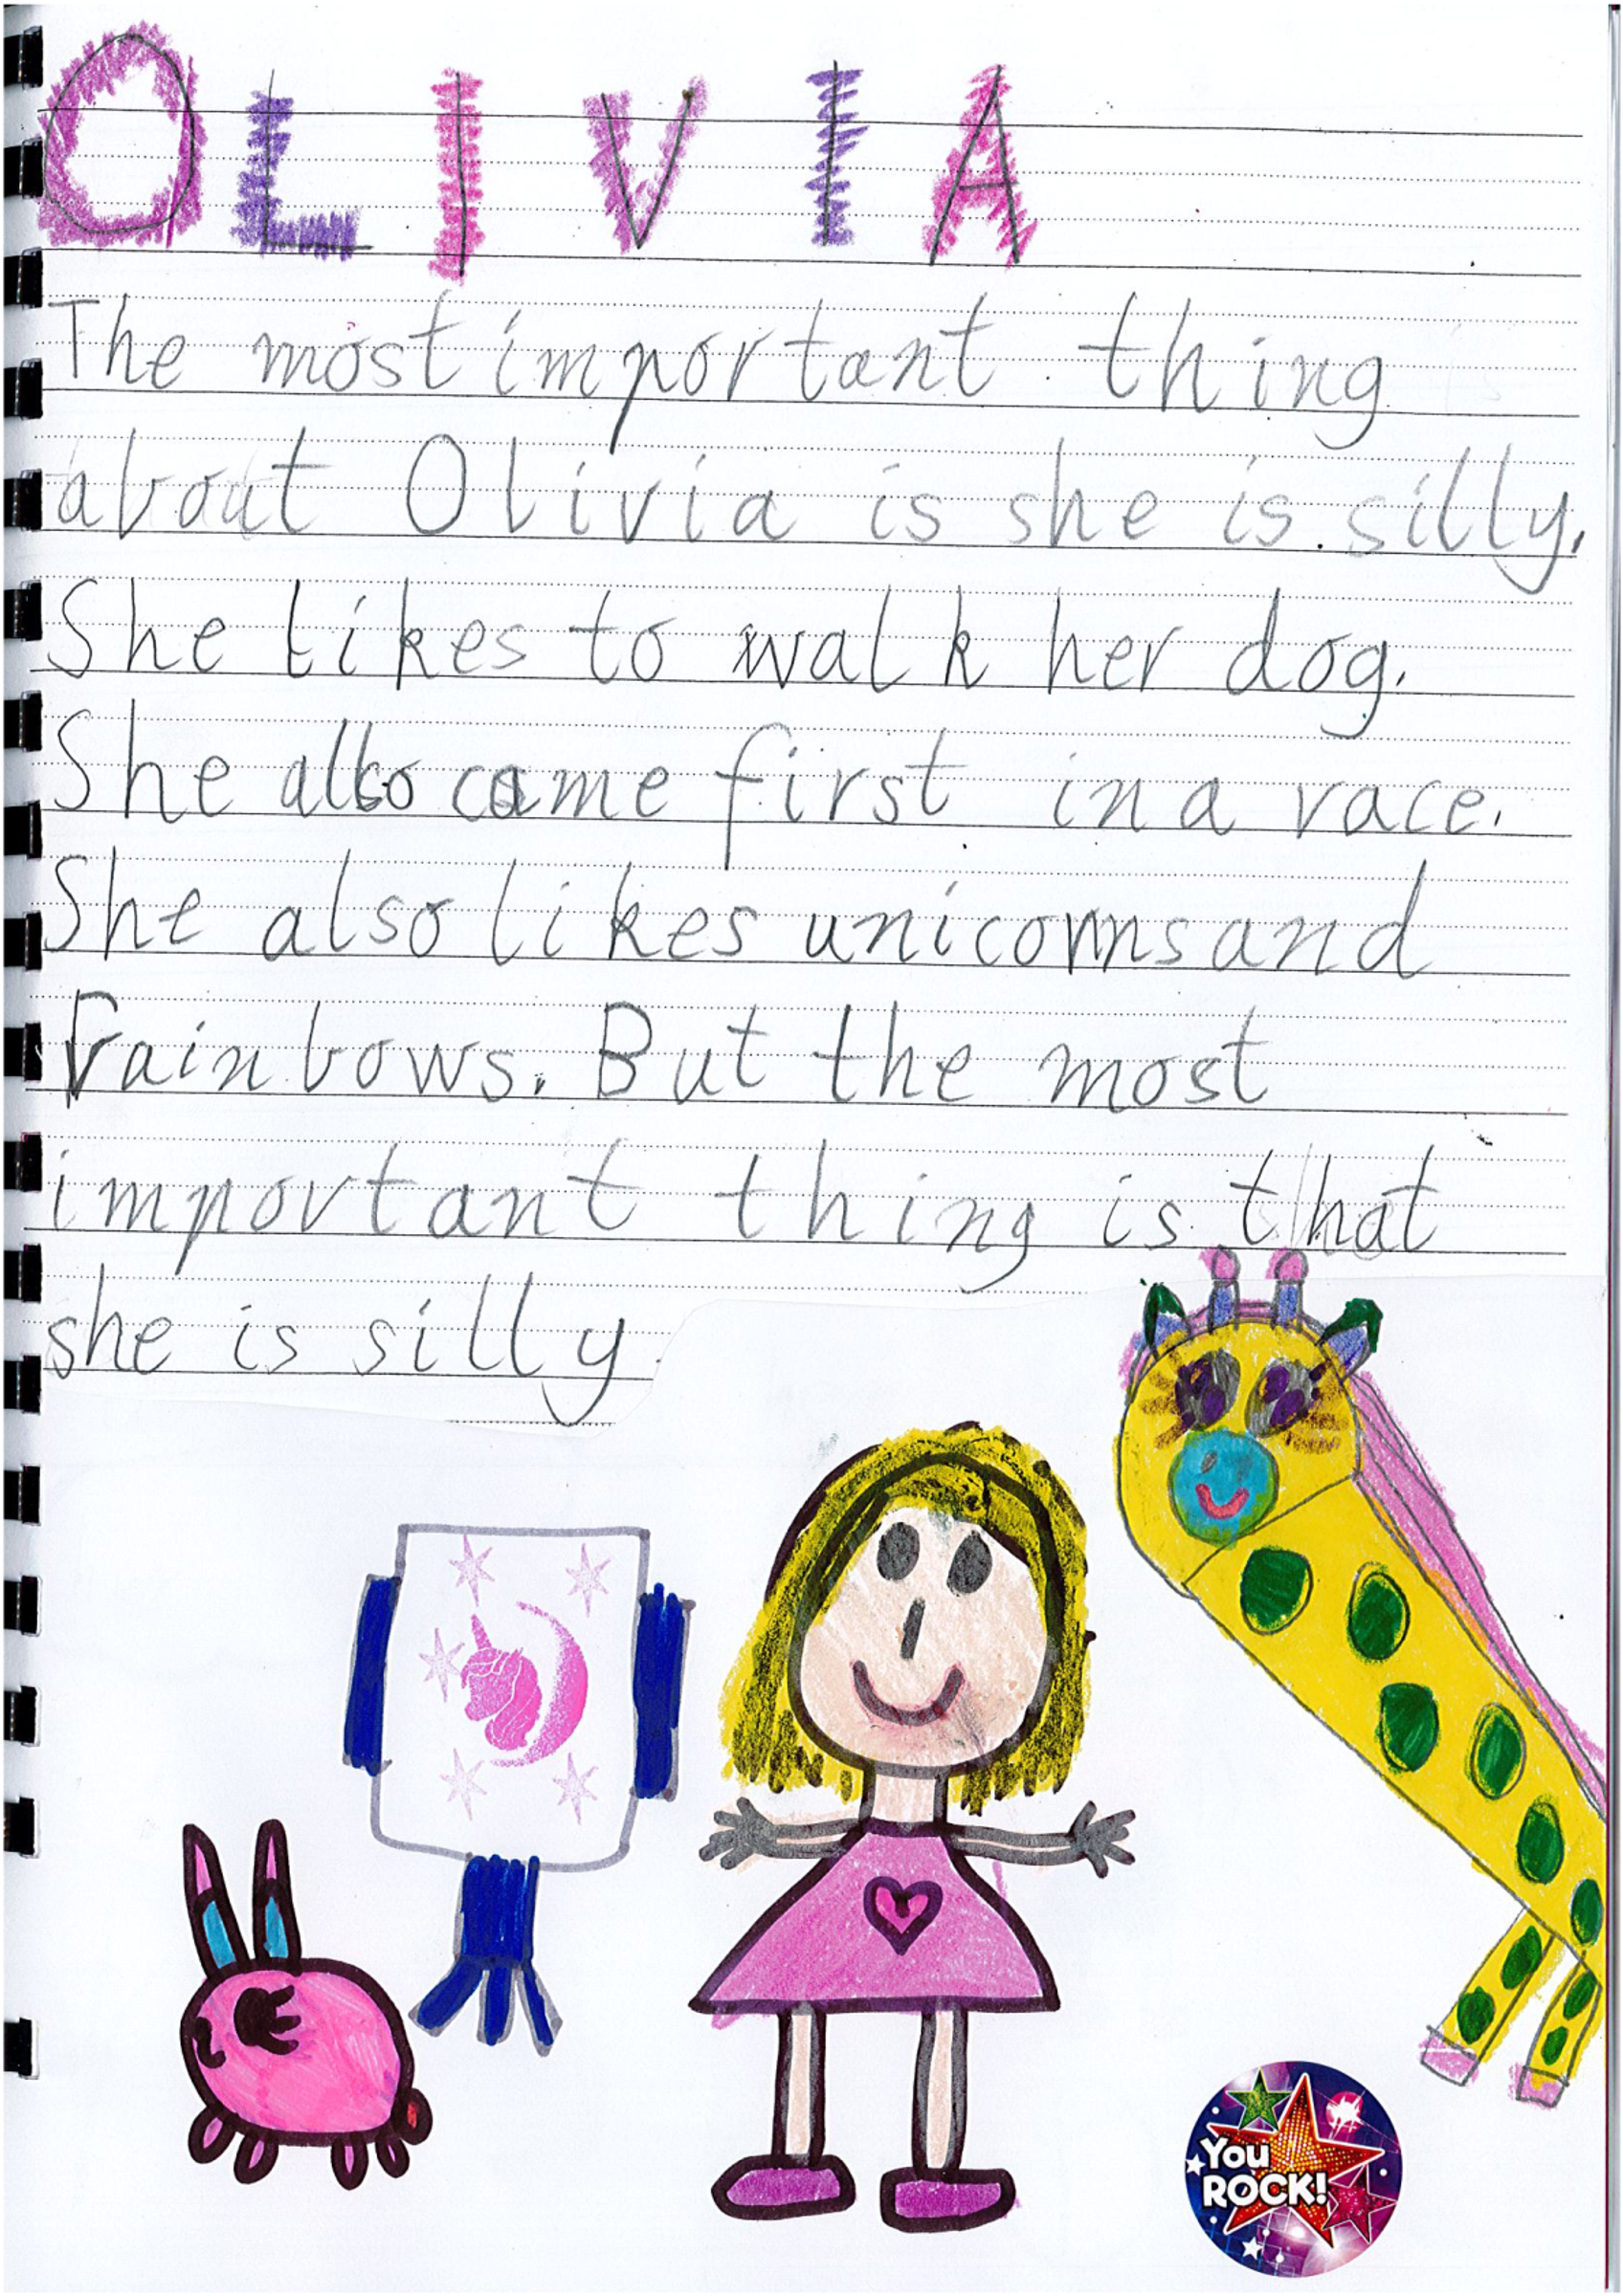 OLIVIA
The most important thing
about Olivia is she is silly.
She likes to walk her dog.
She also came first in a race.
She also likes unicorns and
rainbows. But the most
important thing is that
she is silly
You
ROCK!